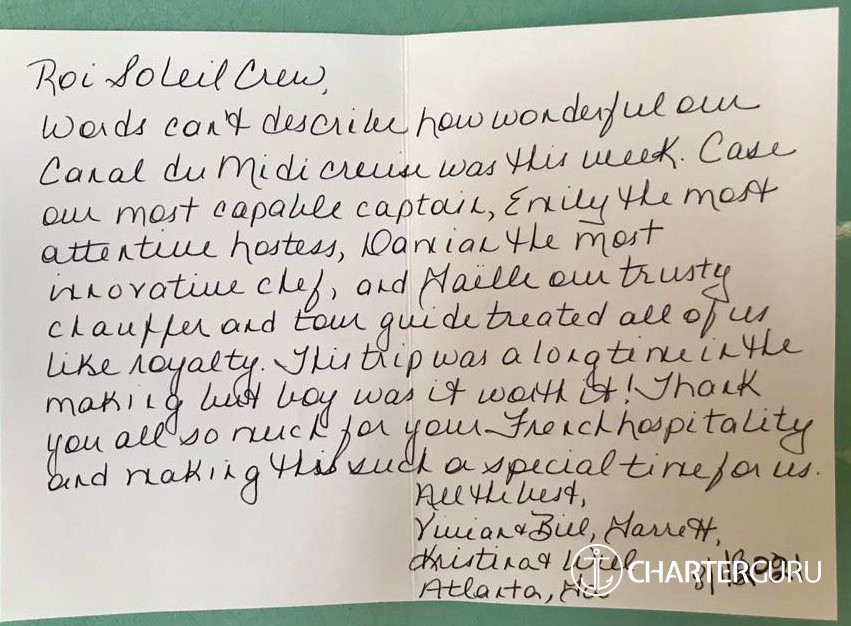 Roi Soleil Crew,
Words can't describe how wonderful our
Canal du Midi creuise was this week. Case
our most capable captain, Emily the most
attentive hostess, Damian the most
innovative chef, and Gaëlle our trusty
chauffer and tour guide treated all of us
like royalty. This trip was a long time in the
making but boy was it worth it! Thank
you all so much for your French hospitality
and making this such a special time for us.
All the best,
Vivian & Bill, Garrett,
Kristina & Will
Atlanta,
CHARTERGURU